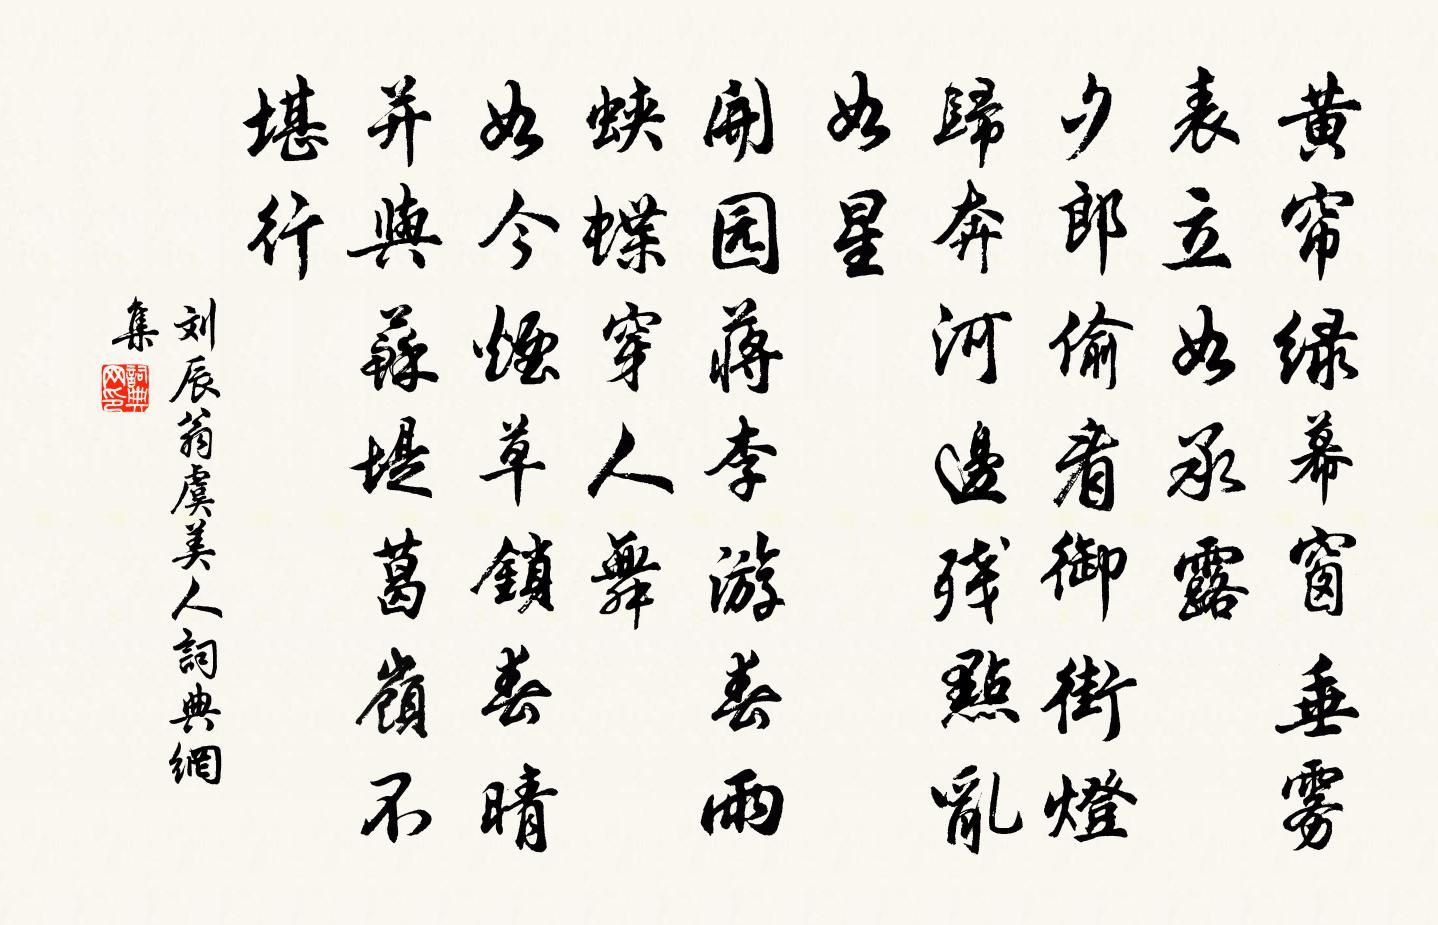 黄帘绿幕窗垂雾
表立如承露
夕郎偷看御街燈
歸奔河邊残點亂
如星
開园蒋李游春雨
蛱蝶穿人舞
如今煙草鎖春晴
并與蘇堤葛嶺不
堪行
刘辰翁虞美人詞典網
集
詞典网印